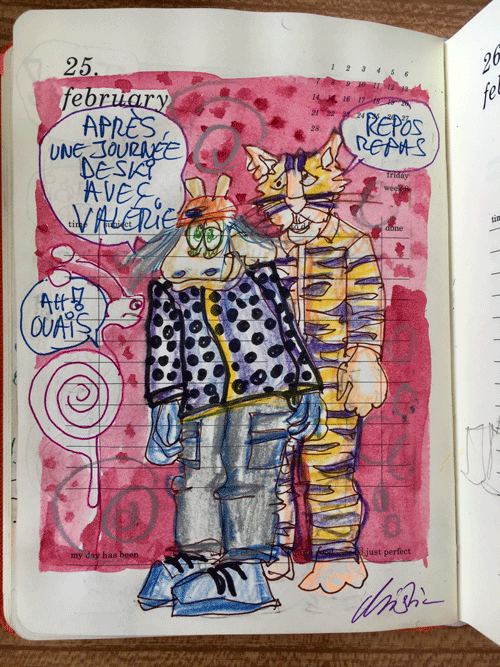 25.
february
1 2 3 4 5 6
14
21 22 23 24 27
28
friday
week
time subject
done
APRÈS
UNE JOURNÉE
DE SKI
AVEC
VALÉRIE
REPOS
REPAS
AH!
OUAIS
my day has been
just perfect
26